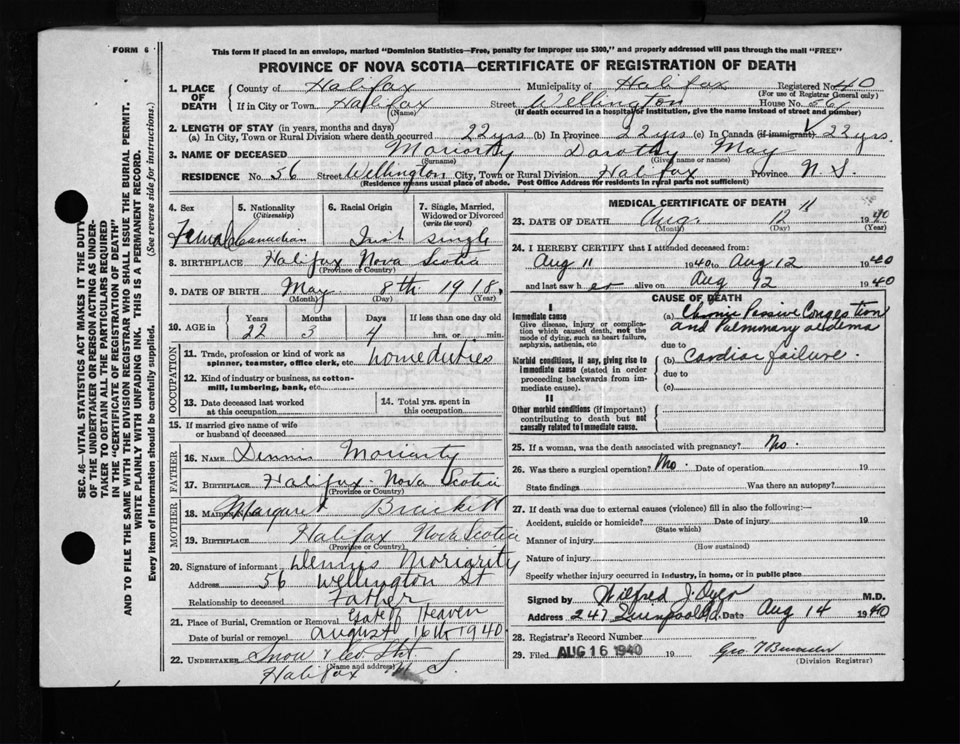 FORM 6
This form if placed in an envelope, marked "Dominion Statistics—Free, penalty for improper use $300," and properly addressed will pass through the mail "FREE"
PROVINCE OF NOVA SCOTIA—CERTIFICATE OF REGISTRATION OF DEATH
1. PLACE OF DEATH { County of Halifax Municipality of Halifax Registered No. 40
(For use of Registrar General only)
If in City or Town, Halifax Street Wellington House No. 56
(Name) (If death occurred in a hospital or institution, give the name instead of street and number)
2. LENGTH OF STAY (in years, months and days)
(a) In City, Town or Rural Division where death occurred 22 yrs (b) In Province 22 yrs (c) In Canada (if immigrant) 22 yrs.
3. NAME OF DECEASED Moriarty Dorothy May
(Surname) (Given name or names)
RESIDENCE No. 56 Street Wellington City, Town or Rural Division Halifax Province N. S.
(Residence means usual place of abode. Post Office Address for residents in rural parts not sufficient)
4. Sex 5. Nationality (Citizenship) 6. Racial Origin 7. Single, Married, Widowed or Divorced (write the word)
Female Canadian Irish single
8. BIRTHPLACE Halifax Nova Scotia
(Province or Country)
9. DATE OF BIRTH May 8th 1918.
(Month) (Day) (Year)
10. AGE in Years Months Days If less than one day old
22 3 4 hrs. or min.
OCCUPATION
11. Trade, profession or kind of work as spinner, teamster, office clerk, etc. home duties
12. Kind of industry or business, as cotton-mill, lumbering, bank, etc.
13. Date deceased last worked at this occupation
14. Total yrs. spent in this occupation
15. If married give name of wife or husband of deceased
FATHER
16. NAME Dennis Moriarty
17. BIRTHPLACE Halifax Nova Scotia
(Province or Country)
MOTHER
18. MAIDEN NAME Margaret Brackett
19. BIRTHPLACE Halifax Nova Scotia
(Province or Country)
20. Signature of informant Dennis Moriarity
Address 56 Wellington St
Relationship to deceased Father
21. Place of Burial, Cremation or Removal Gate of Heaven
Date of burial or removal August 16th 1940
22. UNDERTAKER Snow & Co
(Name and address)
Halifax N S.
MEDICAL CERTIFICATE OF DEATH
23. DATE OF DEATH Aug. 12 1940
(Month) (Day) (Year)
24. I HEREBY CERTIFY that I attended deceased from:
Aug 11 1940 to Aug 12 1940
and last saw her alive on Aug 12 1940
CAUSE OF DEATH
I
Immediate cause
Give disease, injury or complication which caused death, not the mode of dying, such as heart failure, asphyxia, asthenia, etc
(a) Chronic Passive Congestion
and Pulmonary oedema
due to
Morbid conditions, if any, giving rise to immediate cause (stated in order proceeding backwards from immediate cause).
(b) Cardiac failure.
due to
(c)
II
Other morbid conditions (if important) contributing to death but not causally related to immediate cause.
25. If a woman, was the death associated with pregnancy? No.
26. Was there a surgical operation? No. Date of operation 19
State findings Was there an autopsy?
27. If death was due to external causes (violence) fill in also the following:—
Accident, suicide or homicide? Date of injury 19
(State which)
Manner of injury
(How sustained)
Nature of injury
Specify whether injury occurred in industry, in home, or in public place
Signed by Wilfred J. Dyer M.D.
Address 247 Quinpool Rd. Date Aug 14 1940
28. Registrar's Record Number
29. Filed AUG 16 1940 19
(Division Registrar)
SEC. 46—VITAL STATISTICS ACT MAKES IT THE DUTY
OF THE UNDERTAKER OR PERSON ACTING AS UNDER-
TAKER TO OBTAIN ALL THE PARTICULARS REQUIRED
IN THE "CERTIFICATE OF REGISTRATION OF DEATH"
AND TO FILE THE SAME WITH THE DIVISION REGISTRAR WHO SHALL ISSUE THE BURIAL PERMIT.
WRITE PLAINLY WITH UNFADING INK. THIS IS A PERMANENT RECORD.
Every item of information should be carefully supplied. (See reverse side for instructions.)